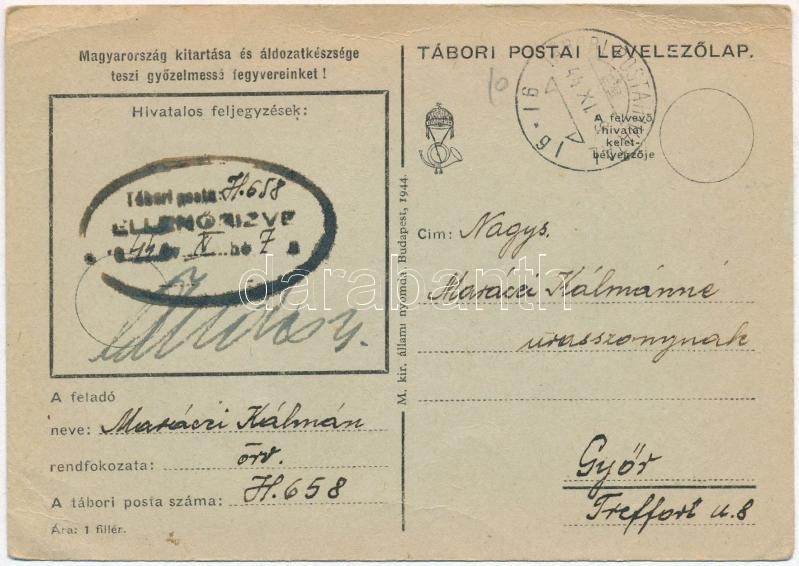 Magyarország kitartása és áldozatkészsége
teszi győzelmessé fegyvereinket !
Hivatalos feljegyzések:
Tábori posta: H.658
ELLENŐRIZVE
1944 év IV hó 7 n
A feladó
neve: Maráczi Kálmán
rendfokozata: örv.
A tábori posta száma: H.658
Ára: 1 fillér.
M. kir. állami nyomda, Budapest, 1944.
TÁBORI POSTAI LEVELEZŐLAP.
10
16-16
44 XI
A felvevő
hivatal
kelet-
bélyegzője
Cím: Nagys.
Maráczi Kálmánné
úrasszonynak
Győr
Treffort u. 8
darabanth